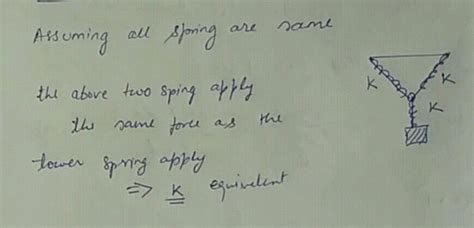 Assuming all spring are same
K
K
the above two sping apply
K
the same force as the
lower spring apply
⇒ K equivelent